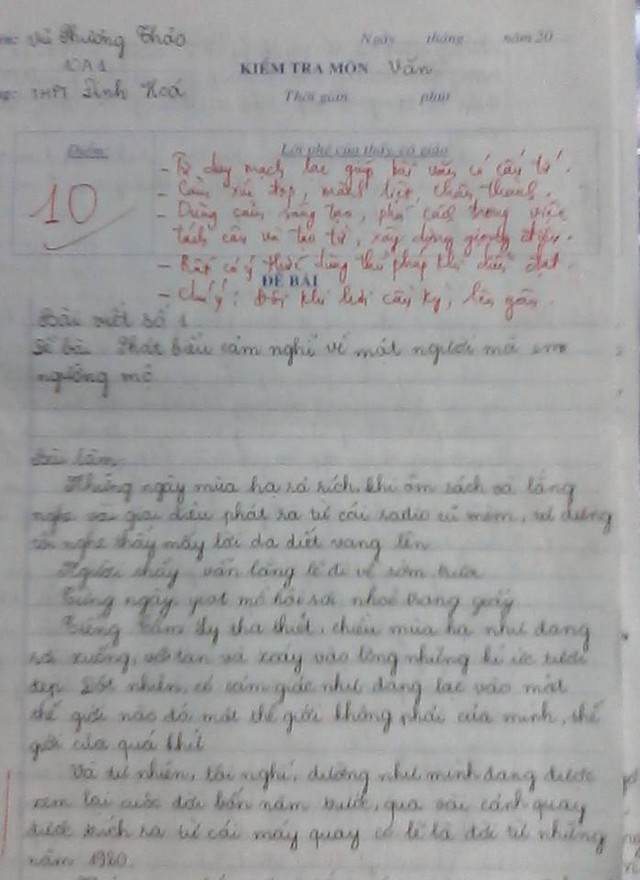 Vũ Phương Thảo
Ngày tháng năm 20
10A1
KIỂM TRA MÔN Văn
THPT Tĩnh Hoá
Thời gian phút
Điểm
Lời phê của thầy, cô giáo
10
- Tư duy mạch lạc giúp bài văn có cấu tứ.
- Cảm xúc đẹp, mãnh liệt, chân thành.
- Dũng cảm, sáng tạo, phá cách trong việc
tách câu và tạo từ, xây dựng giọng điệu.
- Rất có ý thức dùng thủ pháp khi diễn đạt.
ĐỀ BÀI
- Chú ý: Đôi khi hơi cầu kỳ, lên gân.
Bài viết số 1
Đề bài Phát biểu cảm nghĩ về một người mà em
ngưỡng mộ
Bài làm
Những ngày mùa hạ rả rích, khi ôm sách và lắng
nghe vài giai điệu phát ra từ cái radio cũ mèm, tự dưng
tôi nghe thấy mấy lời da diết vang lên
Người thầy vẫn lặng lẽ đi về sớm trưa
Từng ngày giọt mồ hôi rơi nhoè trang giấy
Tiếng Cẩm Ly tha thiết, chiều mùa hạ như đang
rơi xuống, vỡ tan và xoáy vào lòng những kí ức tươi
đẹp. Đột nhiên, có cảm giác như đang lạc vào một
thế giới nào đó, một thế giới không phải của mình, thế
giới của quá khứ.
Và tự nhiên, tôi nghĩ, dường như mình đang được
xem lại cuộc đời bốn năm trước, qua vài cảnh quay
được trích ra từ cái máy quay có lẽ là đời từ những
năm 1920.